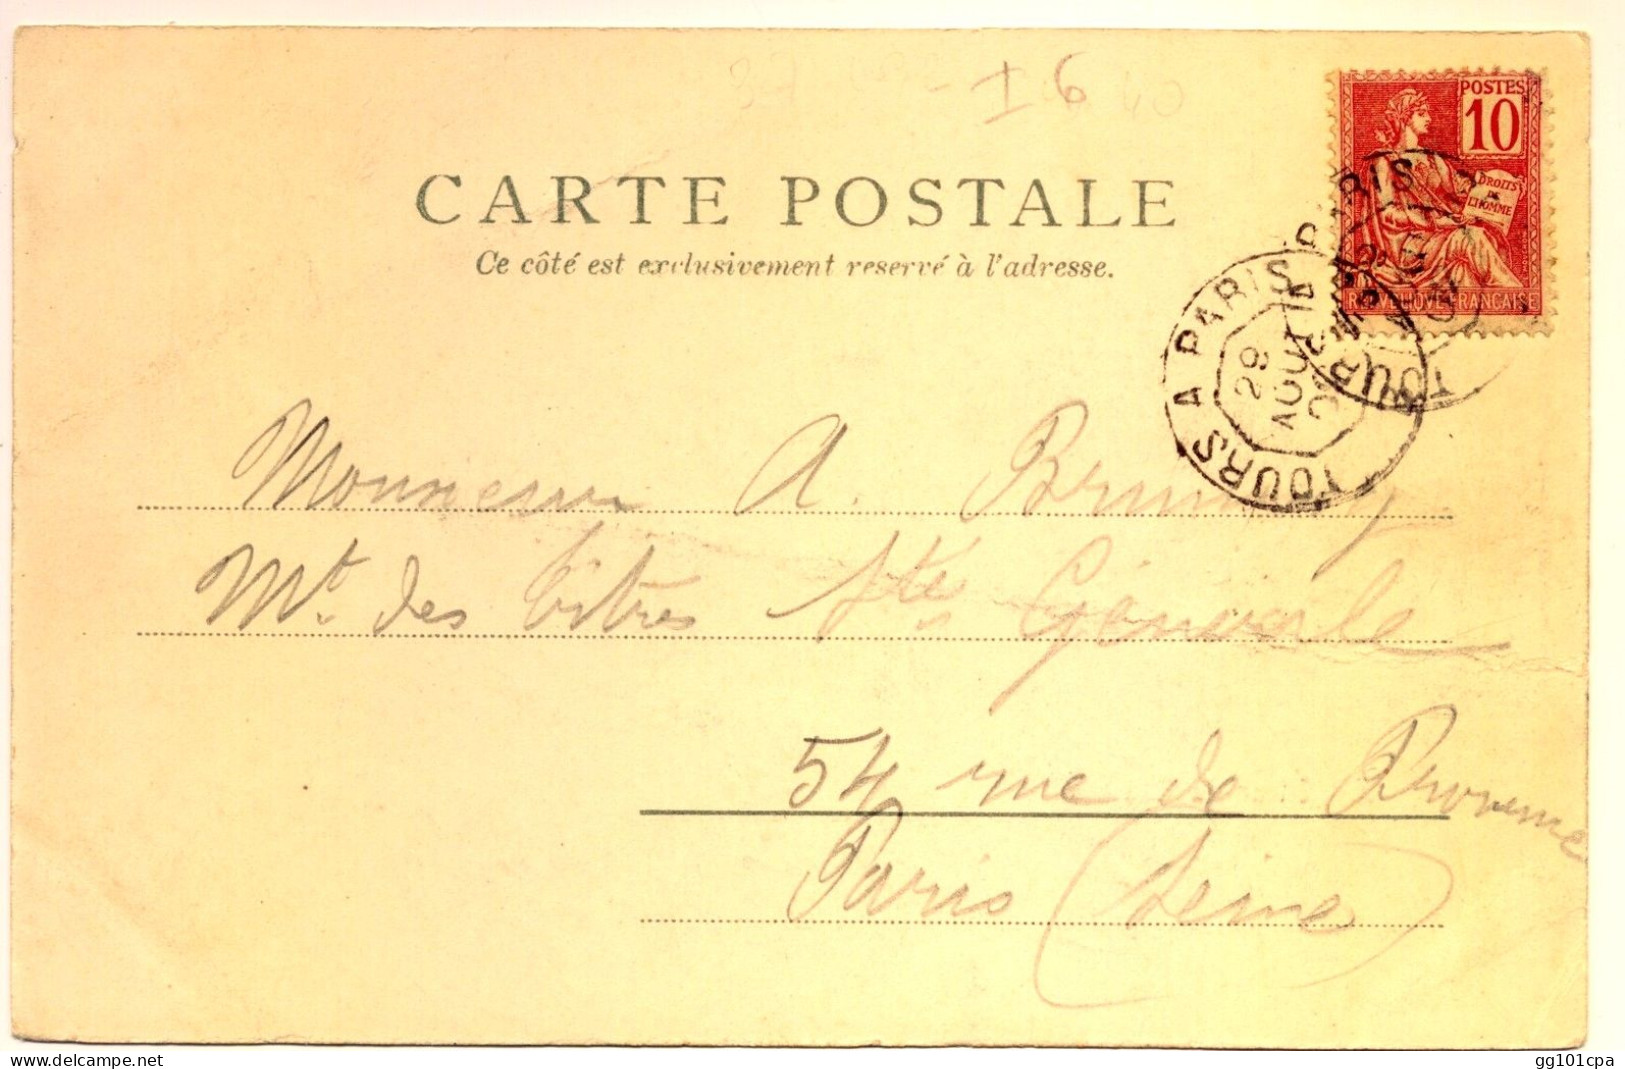 I 6
POSTES
10
DROITS
DE
L'HOMME
REPUBLIQUE FRANCAISE
CARTE POSTALE
Ce côté est exclusivement reservé à l'adresse.
TOURS A PARIS
29
AOUT
TOURS A PARIS
Monsieur A. Brunoy
Mt. des titres Sté Générale
54 rue de Provence
Paris (Seine)
www.delcampe.net
gg101cpa